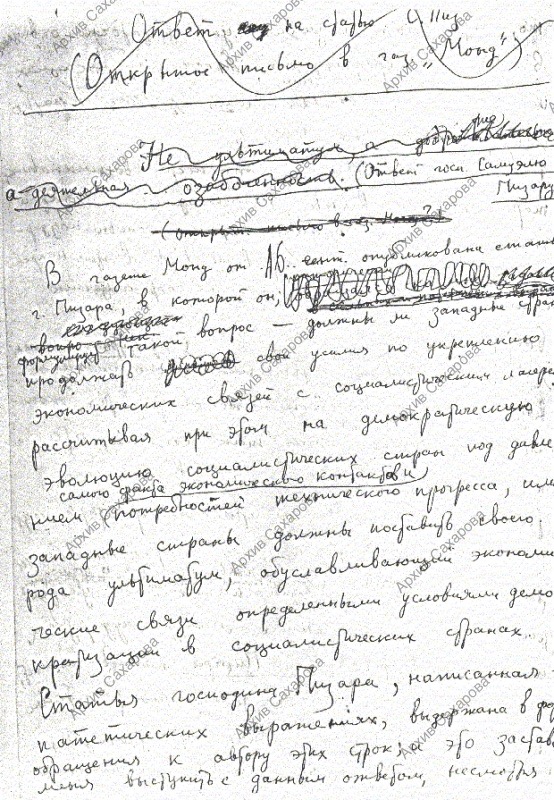 Ответ на статью С. Пиз
(Открытое письмо в газ. „Монд")
Не ультиматум, а
а деятельная озабоченность. (Ответ госп. Самуэлю
Пизару)
(Открыт. письмо в газ. Монд)
В газете Монд от 16 сент. опубликована стат
г. Пизара, в которой он
формулирует такой вопрос — должны ли западные стран
продолжать свои усилия по укреплению
экономических связей с социалистическим лагере
рассчитывая при этом на демократическую
эволюцию социалистических стран под давле
самого факта экономического контакта и
нием потребностей технического прогресса, или
западные страны должны поставить своего
рода ультиматум, обуславливающий экономи
ческие связи определенными условиями демо
кратизации в социалистических странах.
Статья господина Пизара, написанная
патетических выражениях, выдержана в фор
обращения к автору этих строк, и это застав
меня выступить с данным ответом, несмотря
Архив Сахарова